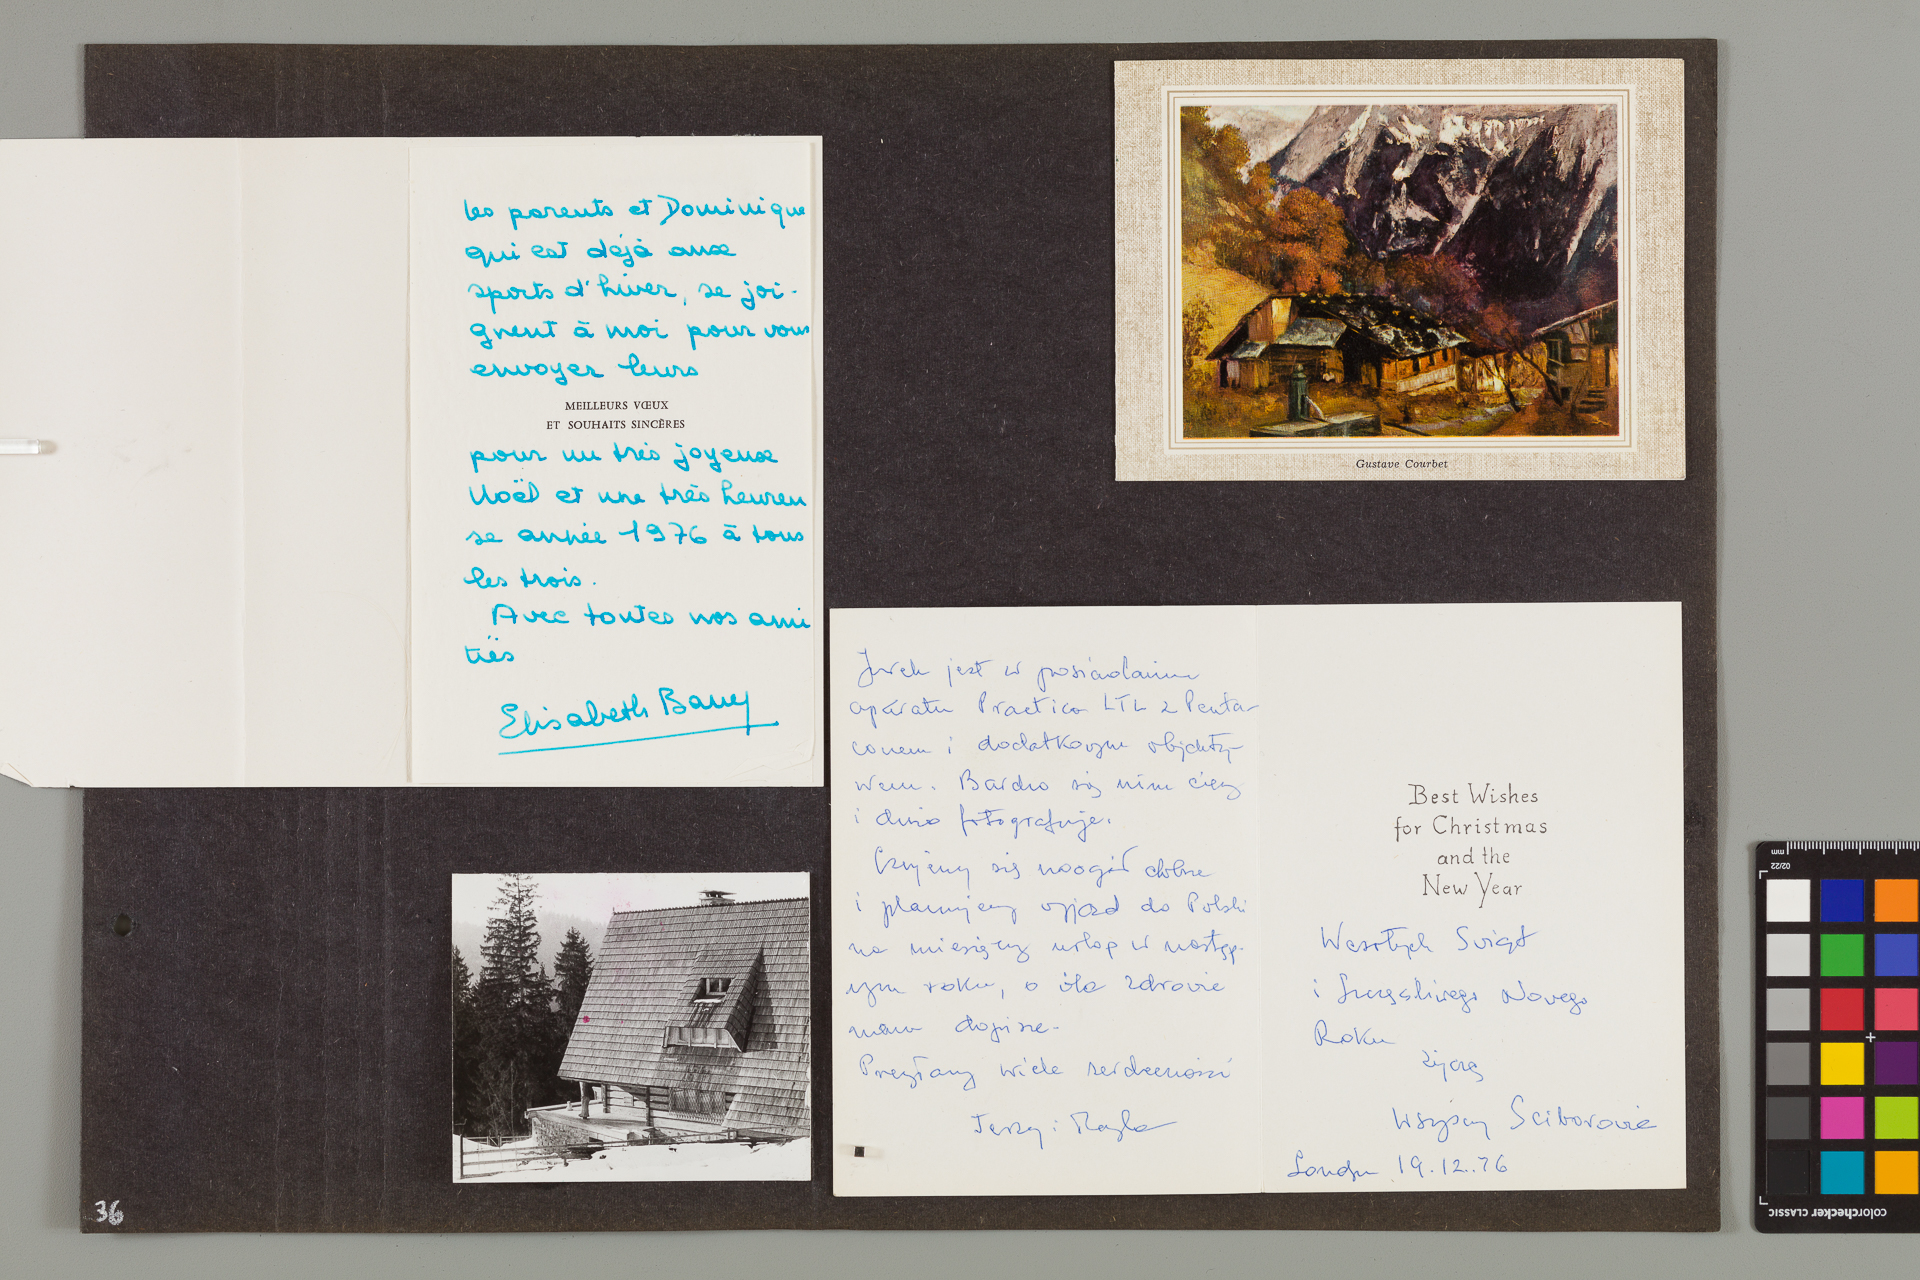 les parents et Dominique
qui est déjà aux
sports d'hiver, se joi-
gnent à moi pour vous
envoyer leurs
MEILLEURS VŒUX
ET SOUHAITS SINCÈRES
pour un très joyeux
Noël et une très heureu
se année 1976 à tous
les trois.
Avec toutes nos ami
tiés
Elisabeth
Gustave Courbet
Jurek jest w posiadaniu
aparatu Practica LTL z Penta-
conem i dodatkowym obiekty-
wem. Bardzo się nim cieszy
i dużo fotografuje.
Czujemy się naogół dobrze
i planujemy wyjazd do Polski
na miesięczny urlop w następ-
nym roku, o ile zdrowie
nam dopisze.
Przesyłamy wiele serdeczności
Jerzy i
Best Wishes
for Christmas
and the
New Year
Wesołych Świąt
i Szczęśliwego Nowego
Roku
życzą
Wszyscy Sciborowie
Londyn 19.12.76
36
mm
02/22
colorchecker CLASSIC